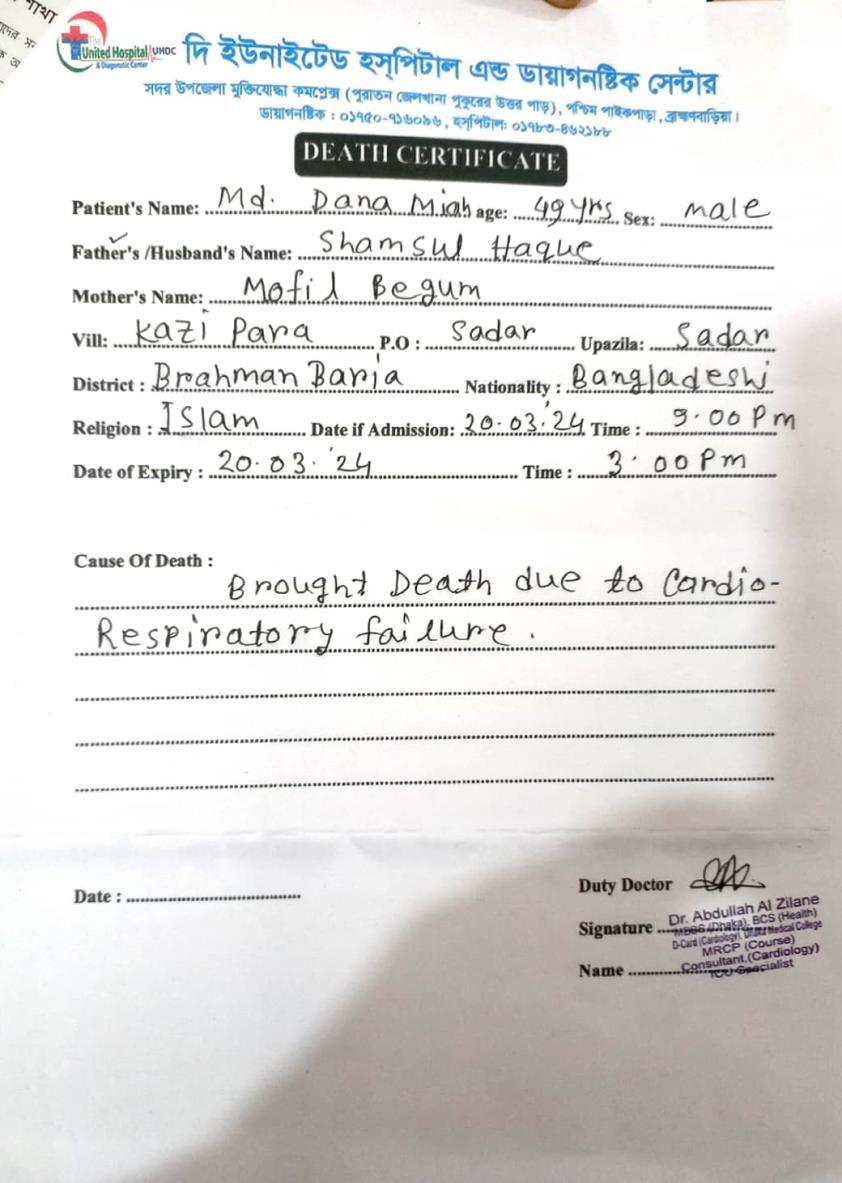 The
United Hospital UHDC
& Diagonstic Center
দি ইউনাইটেড হস্পিটাল এন্ড ডায়াগনষ্টিক সেন্টার
সদর উপজেলা মুক্তিযোদ্ধা কমপ্লেক্স (পুরাতন জেলখানা পুকুরের উত্তর পাড়), পশ্চিম পাইকপাড়া, ব্রাহ্মণবাড়িয়া।
ডায়াগনষ্টিক : ০১৭৫০-৭১৬০৯৬, হস্পিটাল: ০১৭৮৩-৪৬২১৮৮
DEATH CERTIFICATE
Patient's Name: Md. Dana Miah age: 49 yrs Sex: male
Father's /Husband's Name: Shamsul Haque
Mother's Name: Mofil Begum
Vill: Kazi Para P.O : Sadar Upazila: Sadar
District : Brahman Baria Nationality : Bangladeshi
Religion : Islam Date if Admission: 20.03.'24 Time : 9.00 Pm
Date of Expiry : 20.03.'24 Time : 3.00 Pm
Cause Of Death :
Brought Death due to Cardio-
Respiratory failure.
Date : Duty Doctor
Signature Dr. Abdullah Al Zilane
MBBS (Dhaka), BCS (Health)
D-Card (Cardiology), Dhaka Medical College
MRCP (Course)
Name Consultant,(Cardiology)
ICU Specialist